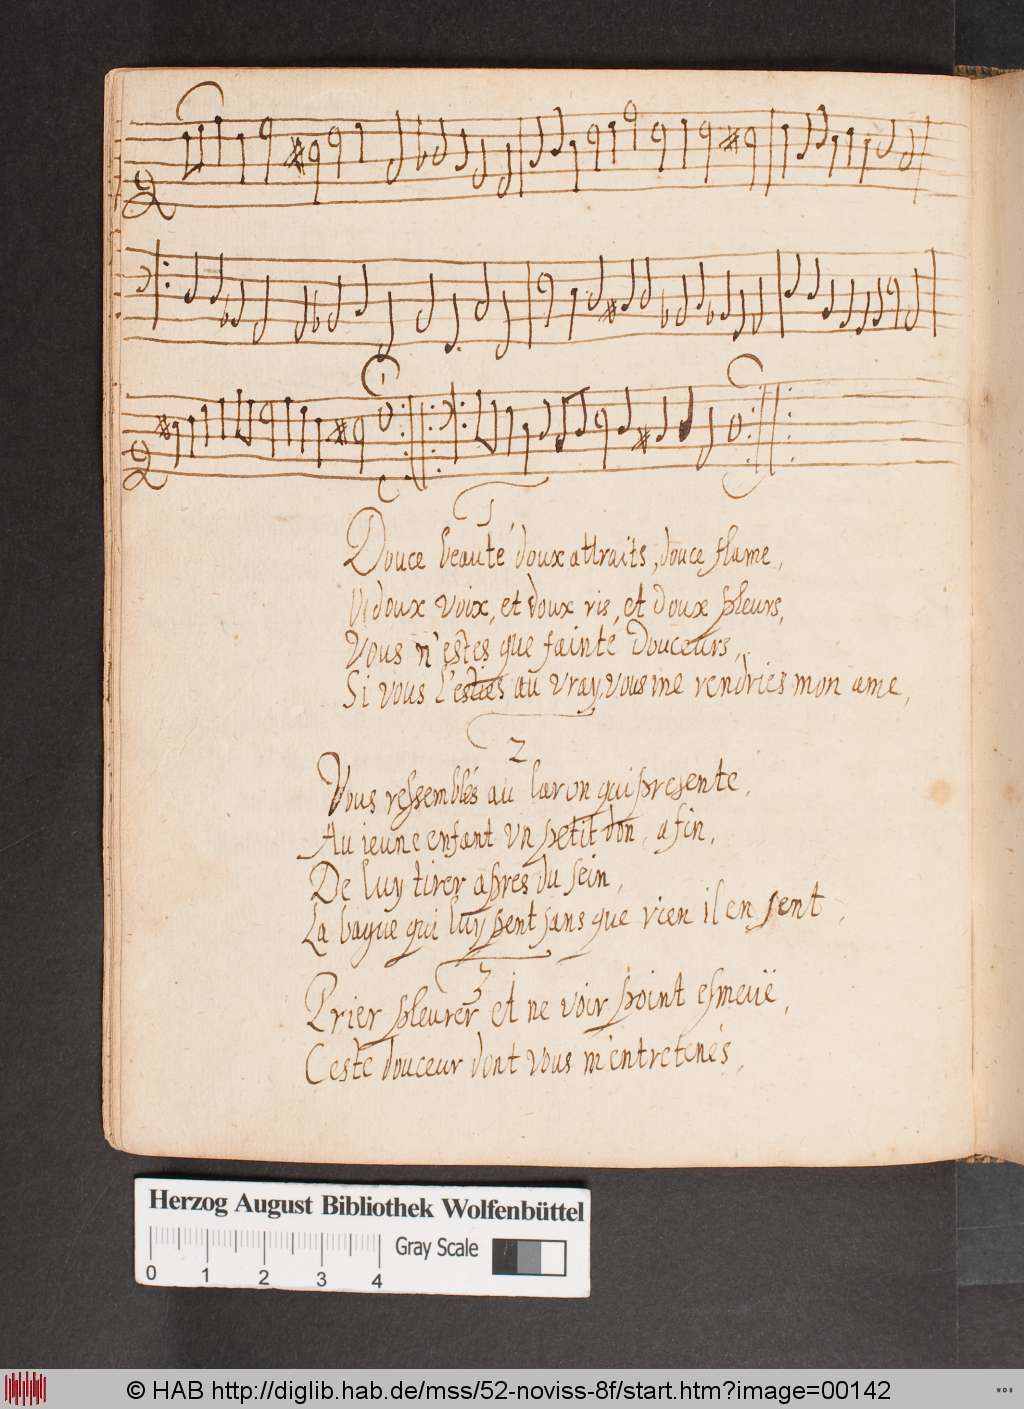 1
Douce beauté doux attraits, douce flame,
Vj doux voix, et doux ris, et doux pleurs,
Vous n'estes que fainté Douceurs,
Si vous l'esties au vray, vous me rendries mon ame,
2
Vous ressemblés au laron qui presente,
Au ieune enfant vn petit don, afin,
De luy tirer apres du sein,
La bague qui luy pent sans que rien il en sent,
3
Prier pleurer et ne voir point esmeuë,
Ceste douceur dont vous m'entretenés,
Herzog August Bibliothek Wolfenbüttel
0 1 2 3 4 Gray Scale
© HAB http://diglib.hab.de/mss/52-noviss-8f/start.htm?image=00142